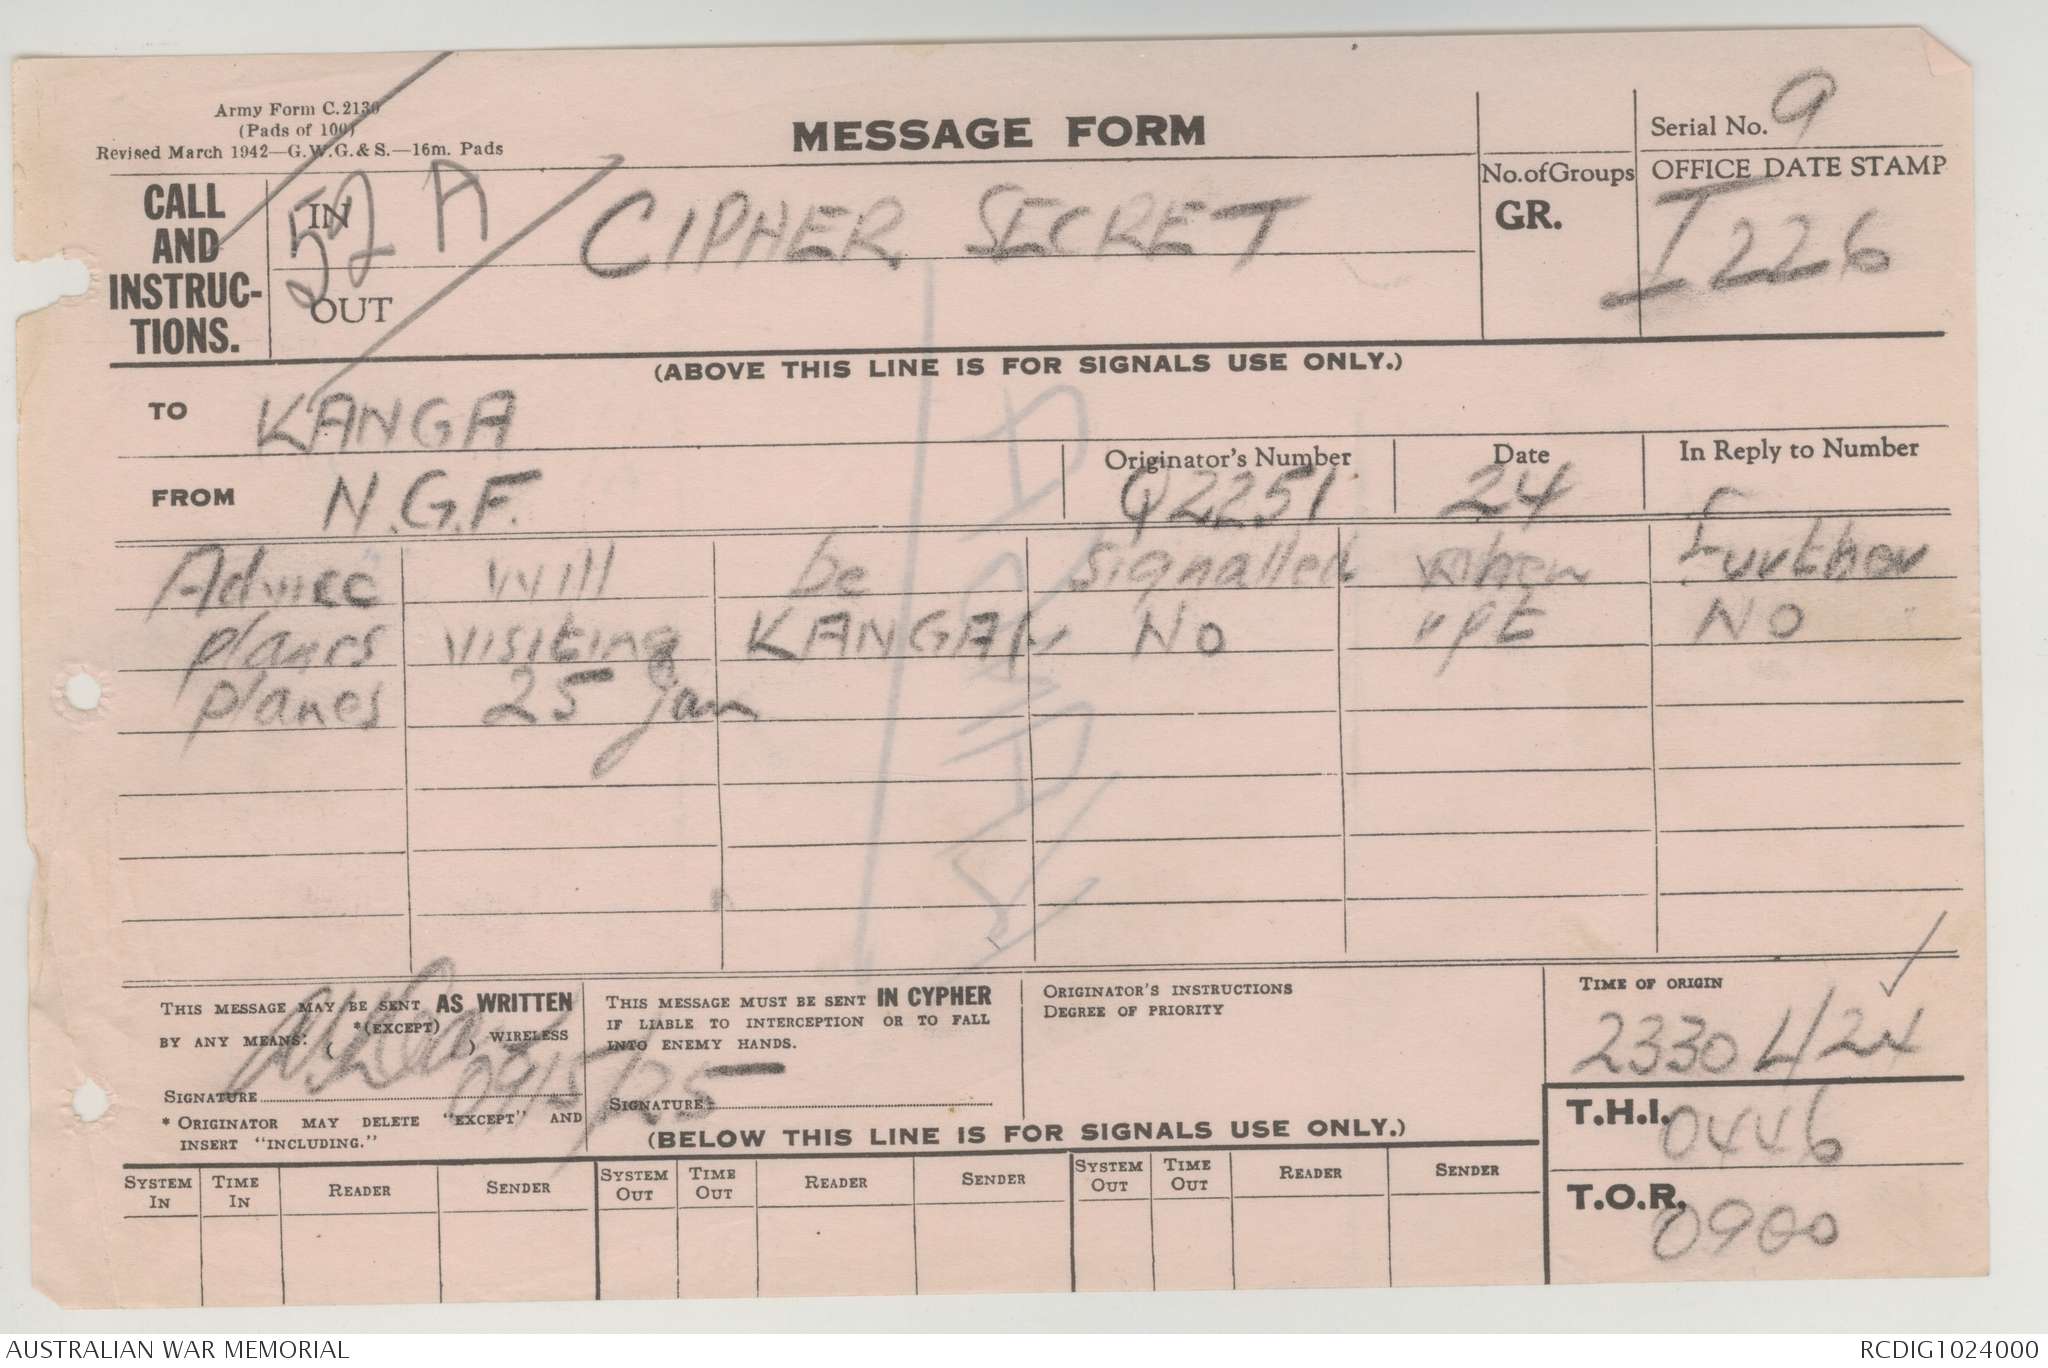 Army Form C.2130
(Pads of 100)
Revised March 1942—G.W.G.&S.—16m. Pads
MESSAGE FORM
Serial No. 9
CALL AND INSTRUC-TIONS.
IN
52 A
OUT
CIPHER SECRET
No. of Groups
GR.
OFFICE DATE STAMP
I 226
(ABOVE THIS LINE IS FOR SIGNALS USE ONLY.)
TO KANGA
FROM N.G.F.
Originator's Number Q2251
Date 24
In Reply to Number
Advice will be signalled when Further
planes visiting KANGA No rpt NO
planes 25 Jan
THIS MESSAGE MAY BE SENT AS WRITTEN
BY ANY MEANS: *(EXCEPT) ( ) WIRELESS
SIGNATURE
0915/25
* ORIGINATOR MAY DELETE "EXCEPT" AND
INSERT "INCLUDING."
THIS MESSAGE MUST BE SENT IN CYPHER
IF LIABLE TO INTERCEPTION OR TO FALL
INTO ENEMY HANDS.
SIGNATURE
ORIGINATOR'S INSTRUCTIONS
DEGREE OF PRIORITY
TIME OF ORIGIN
2330 L/24
T.H.I. 0446
T.O.R. 0900
(BELOW THIS LINE IS FOR SIGNALS USE ONLY.)
SYSTEM IN TIME IN READER SENDER SYSTEM OUT TIME OUT READER SENDER SYSTEM OUT TIME OUT READER SENDER
AUSTRALIAN WAR MEMORIAL RCDIG1024000